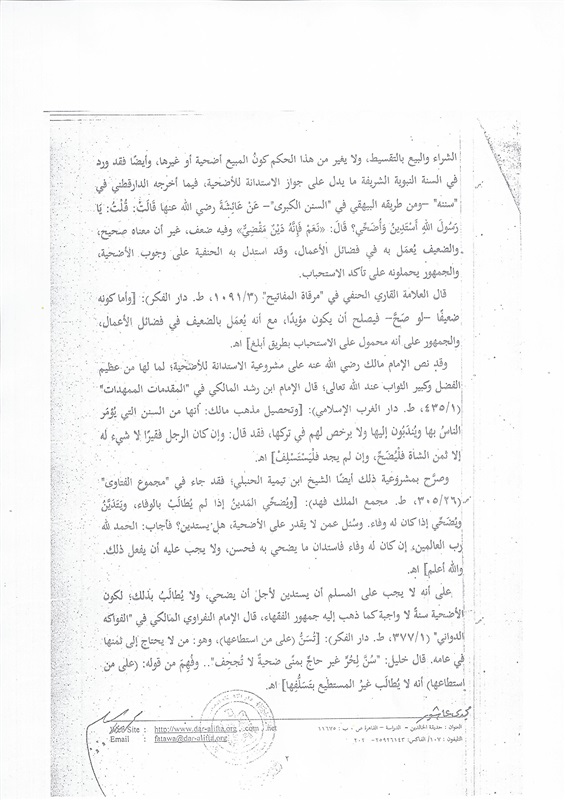 الشراء والبيع بالتقسيط، ولا يغير من هذا الحكم كونُ المبيع أضحية أو غيرها، وأيضًا فقد ورد
في السنة النبوية الشريفة ما يدل على جواز الاستدانة للأضحية، فيما أخرجه الدارقطني في
"سننه" –ومن طريقه البيهقي في "السنن الكبرى"– عَنْ عَائِشَةَ رضي الله عنها قالَتْ: قُلْتُ: يَا
رَسُولَ اللهِ أَسْتَدِينُ وَأُضَحِّي؟ قَالَ: «نَعَمْ فَإِنَّهُ دَيْنٌ مَقْضِيٌّ» وفيه ضعف، غير أن معناه صحيح،
والضعيف يُعمَل به في فضائل الأعمال، وقد استدل به الحنفية على وجوب الأضحية،
والجمهور يحملونه على تأكد الاستحباب.
قال العلامة القاري الحنفي في "مرقاة المفاتيح" (٣/ ١٠٩١، ط. دار الفكر): [وأما كونه
ضعيفًا –لو صَحَّ– فيصلح أن يكون مؤيدًا، مع أنه يُعمَل بالضعيف في فضائل الأعمال،
والجمهور على أنه محمول على الاستحباب بطريق أبلغ] اهـ.
وقد نص الإمام مالك رضي الله عنه على مشروعية الاستدانة للأضحية؛ لما لها من عظيم
الفضل وكبير الثواب عند الله تعالى؛ قال الإمام ابن رشد المالكي في "المقدمات الممهدات"
(١/ ٤٣٥، ط. دار الغرب الإسلامي): [وتحصيل مذهب مالك: أنها من السنن التي يُؤمَر
الناسُ بها ويُندَبُون إليها ولا يرخص لهم في تركها، فقد قال: وإن كان الرجل فقيرًا لا شيء له
إلا ثمن الشاة فَلْيُضَحِّ، وإن لم يجد فَلْيَسْتَسْلِفْ] اهـ.
وصرَّح بمشروعية ذلك أيضًا الشيخ ابن تيمية الحنبلي؛ فقد جاء في "مجموع الفتاوى"
(٢٦/ ٣٠٥، ط. مجمع الملك فهد): [ويُضحِّي المَدينُ إذا لم يُطالَبْ بالوفاء، ويَتَدَيَّنُ
ويُضَحِّي إذا كان له وفاء. وسُئل عمن لا يقدر على الأضحية، هل يستدين؟ فأجاب: الحمد لله
رب العالمين، إن كان له وفاء فاستدان ما يضحي به فحسن، ولا يجب عليه أن يفعل ذلك.
والله أعلم] اهـ.
على أنه لا يجب على المسلم أن يستدين لأجل أن يضحي، ولا يُطالَبُ بذلك؛ لكون
الأضحية سنةً لا واجبة كما ذهب إليه جمهور الفقهاء، قال الإمام النفراوي المالكي في "الفواكه
الدواني" (١/ ٣٧٧، ط. دار الفكر): [تُسَنُّ (على من استطاعها)، وهو: من لا يحتاج إلى ثمنها
في عامه. قال خليل: "سُنَّ لِحُرٍّ غير حاجٍّ بمنًى ضحيةٌ لا تُجحِف".. وفُهِمَ من قوله: (على من
استطاعها) أنه لا يُطالَب غيرُ المستطيع بتَسَلُّفِها] اهـ.
العنوان : حديقة الخالدين - الدراسة - القاهرة ص . ب : ١١٦٧٥
Web Site : http://www.dar-alifta.org .com .net
التليفون : ١٠٧/ الفاكس: ٢٥٩٢٦١٤٣-٢٠٢
Email : fatawa@dar-alifta.org
٢